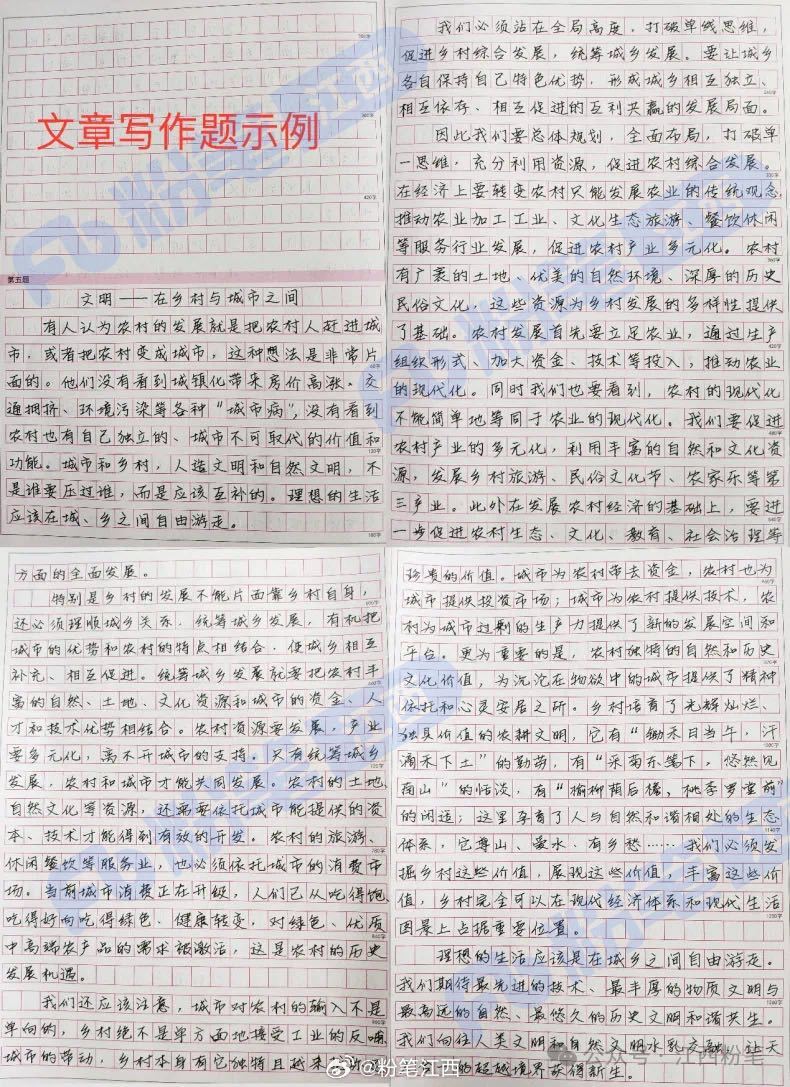 文章写作题示例
第五题
文明——在乡村与城市之间
有人认为农村的发展就是把农村人赶进城
市，或者把农村变成城市，这种想法是非常片
面的。他们没有看到城镇化带来房价高涨、交
通拥挤、环境污染等各种“城市病”，没有看到
农村也有自己独立的、城市不可取代的价值和
功能。城市和乡村，人造文明和自然文明，不
是谁要压过谁，而是应该互补的。理想的生活
应该在城、乡之间自由游走。
我们必须站在全局高度，打破单线思维，
促进乡村综合发展，统筹城乡发展。要让城乡
各自保持自己特色优势，形成城乡相互独立、
相互依存、相互促进的互利共赢的发展局面。
因此我们要总体规划，全面布局，打破单
一思维，充分利用资源，促进农村综合发展。
在经济上要转变农村只能发展农业的传统观念，
推动农业加工工业、文化生态旅游、餐饮休闲
等服务行业发展，促进农村产业多元化。农村
有广袤的土地、优美的自然环境、深厚的历史
民俗文化，这些资源为乡村发展的多样性提供
了基础。农村发展首先要立足农业，通过生产
组织形式、加大资金、技术等投入，推动农业
的现代化。同时我们也要看到，农村的现代化
不能简单地等同于农业的现代化。我们要促进
农村产业的多元化，利用丰富的自然和文化资
源，发展乡村旅游、民俗文化节、农家乐等第
三产业。此外在发展农村经济的基础上，要进
一步促进农村生态、文化、教育、社会治理等
方面的全面发展。
特别是乡村的发展不能片面靠乡村自身，
还必须理顺城乡关系，统筹城乡发展，有机把
城市的优势和农村的特点相结合，使城乡相互
补充、相互促进。统筹城乡发展就要把农村丰
富的自然、土地、文化资源和城市的资金、人
才和技术优势相结合。农村资源要发展，产业
要多元化，离不开城市的支持。只有统筹城乡
发展，农村和城市才能共同发展。农村的土地、
自然文化等资源，还需要依托城市能提供的资
本、技术才能得到有效的开发。农村的旅游、
休闲餐饮等服务业，也必须依托城市的消费市
场。当前城市消费正在升级，人们已从吃得饱、
吃得好向吃得绿色、健康转变，对绿色、优质
中高端农产品的需求被激活，这是农村的历史
发展机遇。
我们还应该注意，城市对农村的输入不是
单向的，乡村绝不是单方面地接受工业的反哺、
城市的带动，乡村本身有它独特且越来越
珍贵的价值。城市为农村带去资金，农村也为
城市提供投资市场；城市为农村提供技术，农
村为城市过剩的生产力提供了新的发展空间和
平台。更为重要的是，农村独特的自然和历史
文化价值，为沉沦在物欲中的城市提供了精神
依托和心灵安居之所。乡村培育了光辉灿烂、
独具价值的农耕文明，它有“锄禾日当午，汗
滴禾下土”的勤劳，有“采菊东篱下，悠然见
南山”的恬淡，有“榆柳荫后檐，桃李罗堂前”
的闲适；这里孕育了人与自然和谐相处的生态
体系，它尊山、爱水、有乡愁……我们必须发
掘乡村这些价值，展现这些价值，丰富这些价
值，乡村完全可以在现代经济体系和现代生活
图景上占据重要位置。
理想的生活应该是在城乡之间自由游走。
我们期待最先进的技术、最丰厚的物质文明与
最高远的自然、最悠久的历史文明和谐共生。
我们向往人类文明和自然文明水乳交融，让天
的超越境界获得新生。
@粉笔江西
公众号·江西粉笔